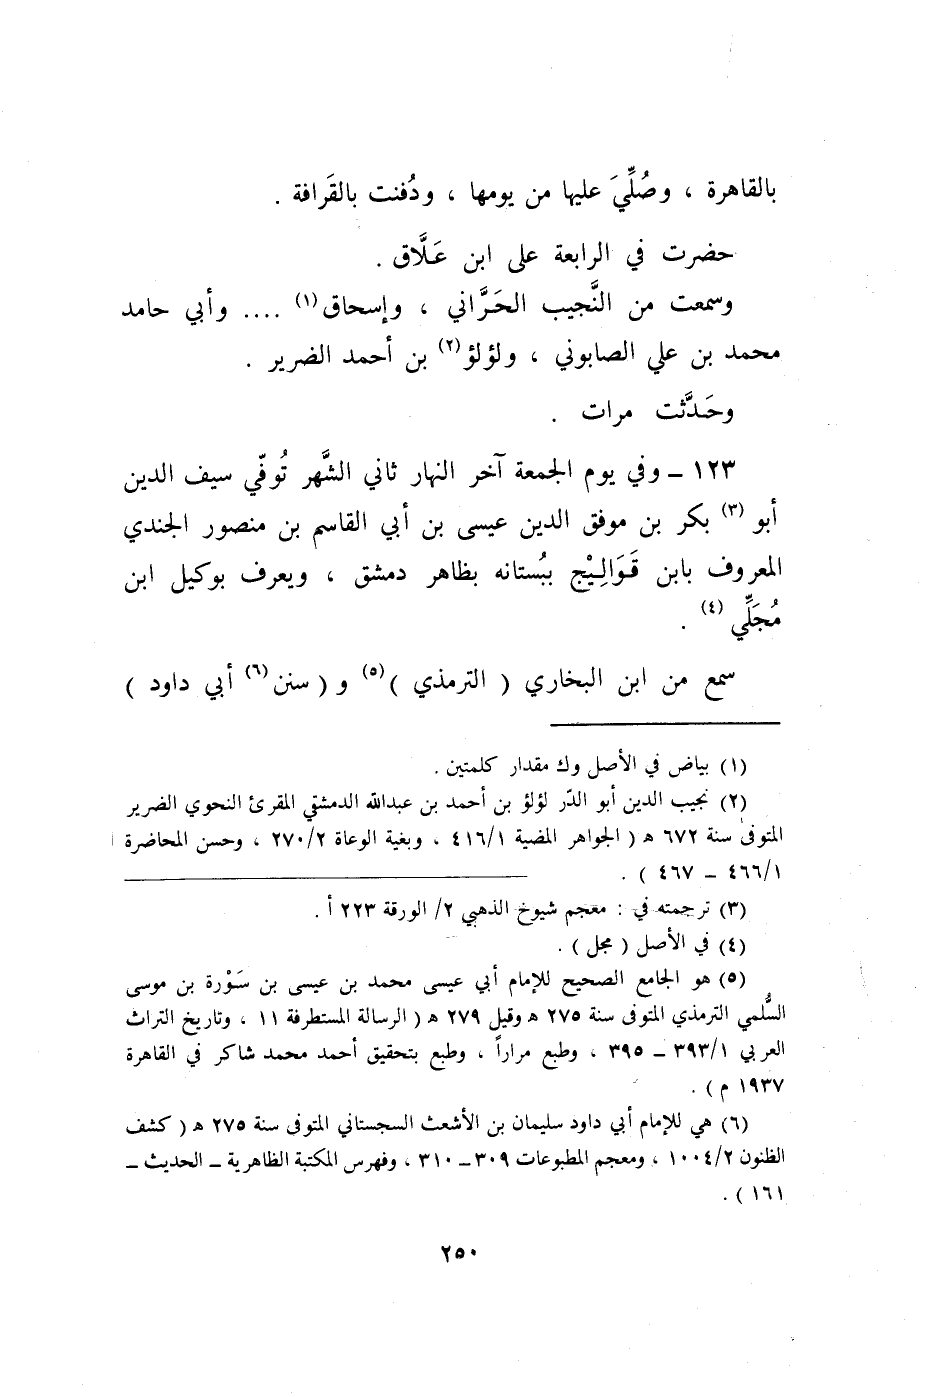 بالقاهرة ، وصُلِّيَ عليها من يومها ، ودُفنت بالقَرافة .
حضرت في الرابعة على ابن عَلَّاق .
وسمعت من النَّجيب الحَرَّاني ، وإسحاق(١) .... وأبي حامد
محمد بن علي الصابوني ، ولؤلؤ(٢) بن أحمد الضرير .
وحَدَّثت مرات .
١٢٣ ـ وفي يوم الجمعة آخر النهار ثاني الشَّهر تُوفّي سيف الدين
أبو (٣) بكر بن موفق الدين عيسى بن أبي القاسم بن منصور الجندي
المعروف بابن قَوَالِيْج ببُستانه بظاهر دمشق ، ويعرف بوكيل ابن
مُجَلِّي (٤) .
سمع من ابن البخاري ( الترمذي )(٥) و ( سنن(٦) أبي داود )
(١) بياض في الأصل وك مقدار كلمتين .
(٢) نجيب الدين أبو الدّر لؤلؤ بن أحمد بن عبدالله الدمشقي المقرئ النحوي الضرير
المتوفى سنة ٦٧٢ ه ( الجواهر المضية ٤١٦/١ ، وبغية الوعاة ٢٧٠/٢ ، وحسن المحاضرة
٤٦٦/١ ـ ٤٦٧ ) .
(٣) ترجمته في : معجم شيوخ الذهبي ٢/ الورقة ٢٢٣ أ .
(٤) في الأصل ( مجل ) .
(٥) هو الجامع الصحيح للإمام أبي عيسى محمد بن عيسى بن سَوْرة بن موسى
السُّلمي الترمذي المتوفى سنة ٢٧٥ ه وقيل ٢٧٩ ه ( الرسالة المستطرفة ١١ ، وتاريخ التراث
العربي ٣٩٣/١ ـ ٣٩٥ ، وطبع مراراً ، وطبع بتحقيق أحمد محمد شاكر في القاهرة
١٩٣٧ م ) .
(٦) هي للإمام أبي داود سليمان بن الأشعث السجستاني المتوفى سنة ٢٧٥ ه ( كشف
الظنون ١٠٠٤/٢ ، ومعجم المطبوعات ٣٠٩ ـ ٣١٠ ، وفهرس المكتبة الظاهرية ـ الحديث ـ
١٦١ ) .
٢٥٠